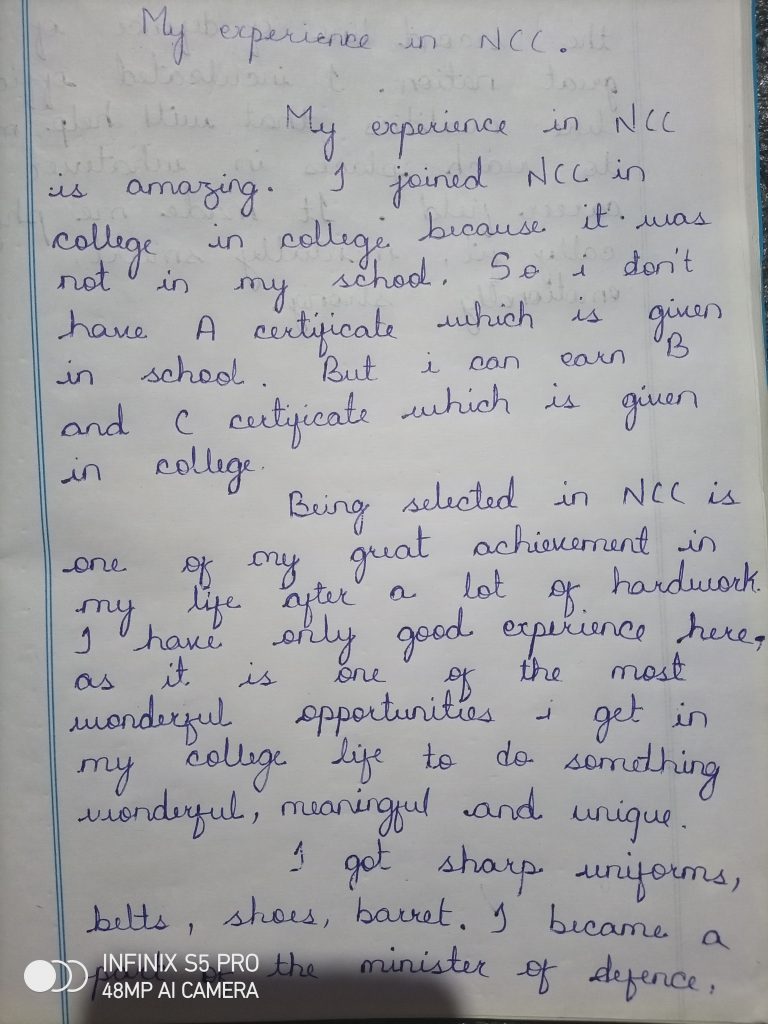 My experience in NCC.
My experience in NCC
is amazing. I joined NCC in
college in college because it was
not in my school. So i don't
have A certificate which is given
in school. But i can earn B
and C certificate which is given
in college.
Being selected in NCC is
one of my great achievement in
my life after a lot of hardwork.
I have only good experience here,
as it is one of the most
wonderful opportunities i get in
my college life to do something
wonderful, meaningful and unique.
I got sharp uniforms,
belts, shoes, barret. I became a
part of the minister of defence.
INFINIX S5 PRO
48MP AI CAMERA